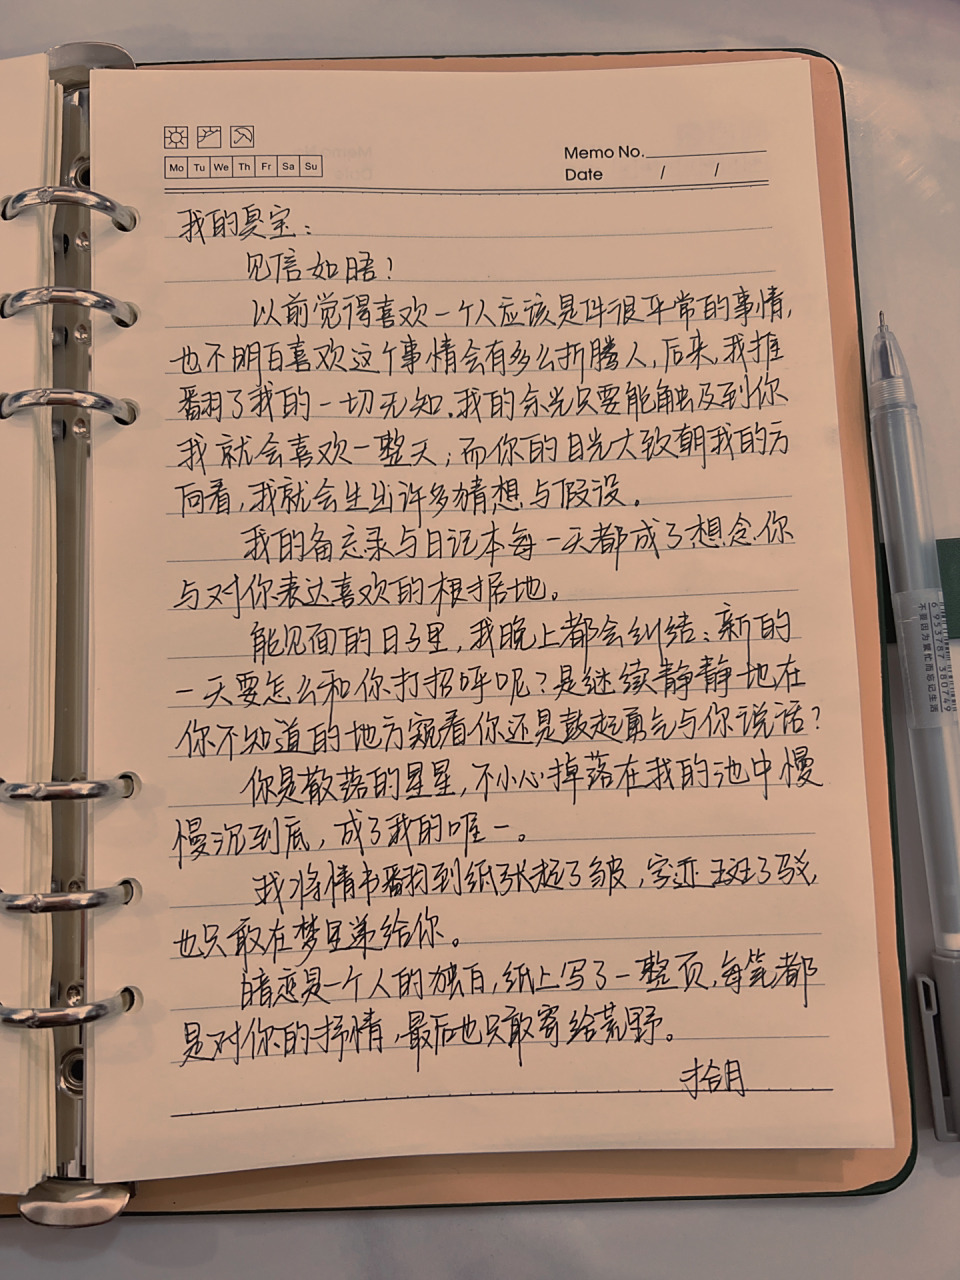 Mo Tu We Th Fr Sa Su
Memo No.
Date / /
我的夏宝：
见信如晤！
以前觉得喜欢一个人应该是件很平常的事情，
也不明白喜欢这个事情会有多么折腾人，后来，我推
翻了我的一切无知，我的余光只要能触及到你
我就会喜欢一整天；而你的目光大致朝我的方
向看，我就会生出许多猜想与假设。
我的备忘录与日记本每一天都成了想念你
与对你表达喜欢的根据地。
能见面的日子里，我晚上都会纠结：新的
一天要怎么和你打招呼呢？是继续静静地在
你不知道的地方窥看你还是鼓起勇气与你说话？
你是散落的星星，不小心掉落在我的池中慢
慢沉到底，成了我的唯一。
我将情书翻到纸张起了皱，字迹斑了驳，
也只敢在梦里递给你。
暗恋是一个人的独白，纸上写了一整页，每笔都
是对你的抒情，最后也只敢寄给荒野。
拾月
6 953787 380749
不要因为繁忙而忘记生活